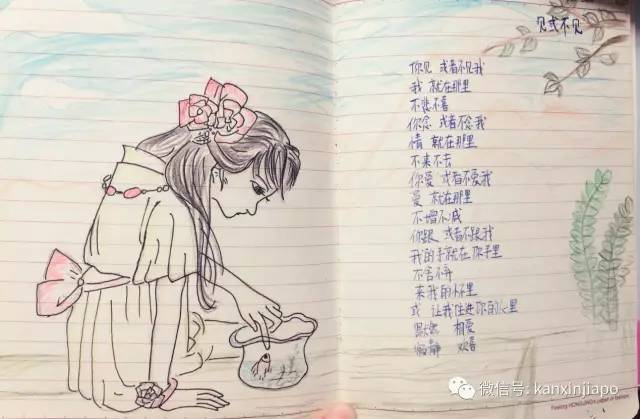 见或不见
你见 或者不见我
我 就在那里
不悲不喜
你念 或者不念我
情 就在那里
不来不去
你爱 或者不爱我
爱 就在那里
不增不减
你跟 或者不跟我
我的手就在你手里
不舍不弃
来我的怀里
或 让我住进你的心里
默然 相爱
寂静 欢喜
微信号: kanxinjiapo